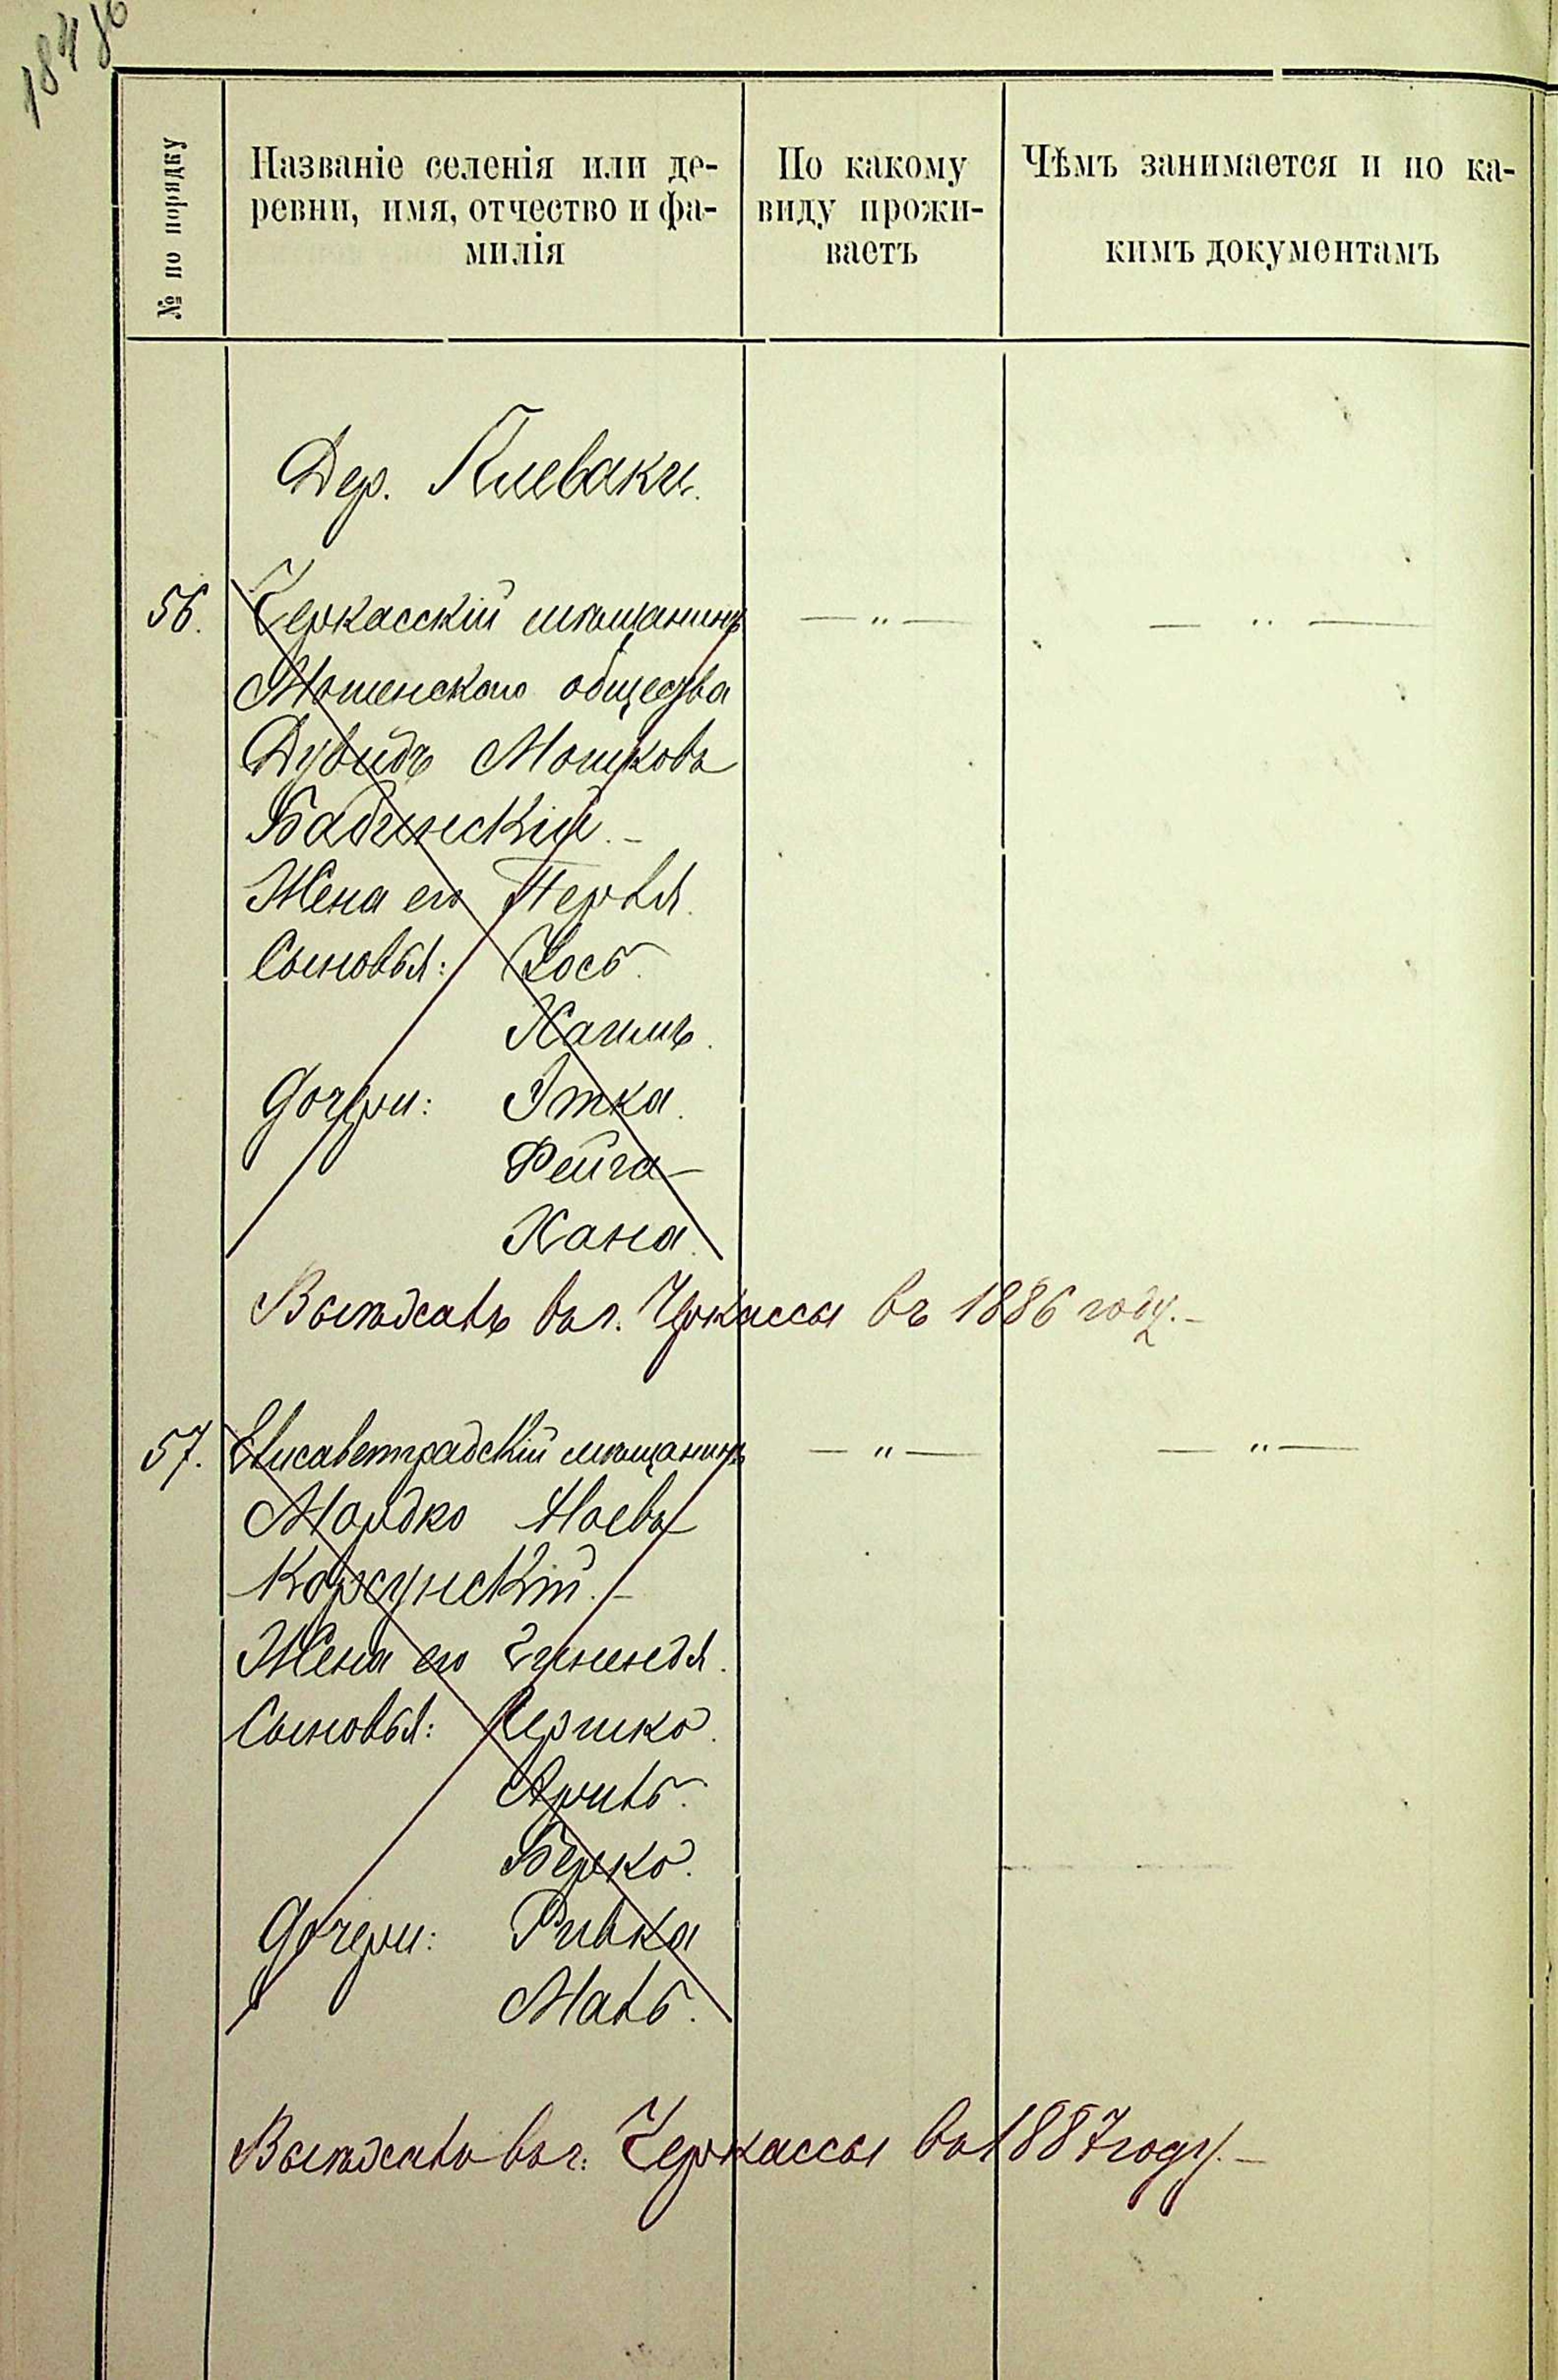 № по порядку
Названіе селенія или де-
ревни, имя, отчество и фа-
милія
По какому
виду прожи-
ваетъ
Чѣмъ занимается и по ка-
кимъ документамъ
Дер. Плеваки.
56. Черкасскій мѣщанинъ — „ — — „ —
Мошенскаго общества
Дувидъ Мошковъ
Бабинскій. –
Жена его Перля.
Сыновья: Іось.
Хаимъ.
Дочери: Этка.
Фейга
Хана.
Выѣхалъ въ г. Черкассы въ 1886 году. –
57. Елисаветградскій мѣщанинъ — „ — — „ —
Мордко Ноевъ
Корсунскій. –
Жена его
Сыновья: Гершко.
Арить.
Берко.
Дочери: Ривка
Маль.
Выѣхалъ въ г. Черкассы въ 1887 году. –